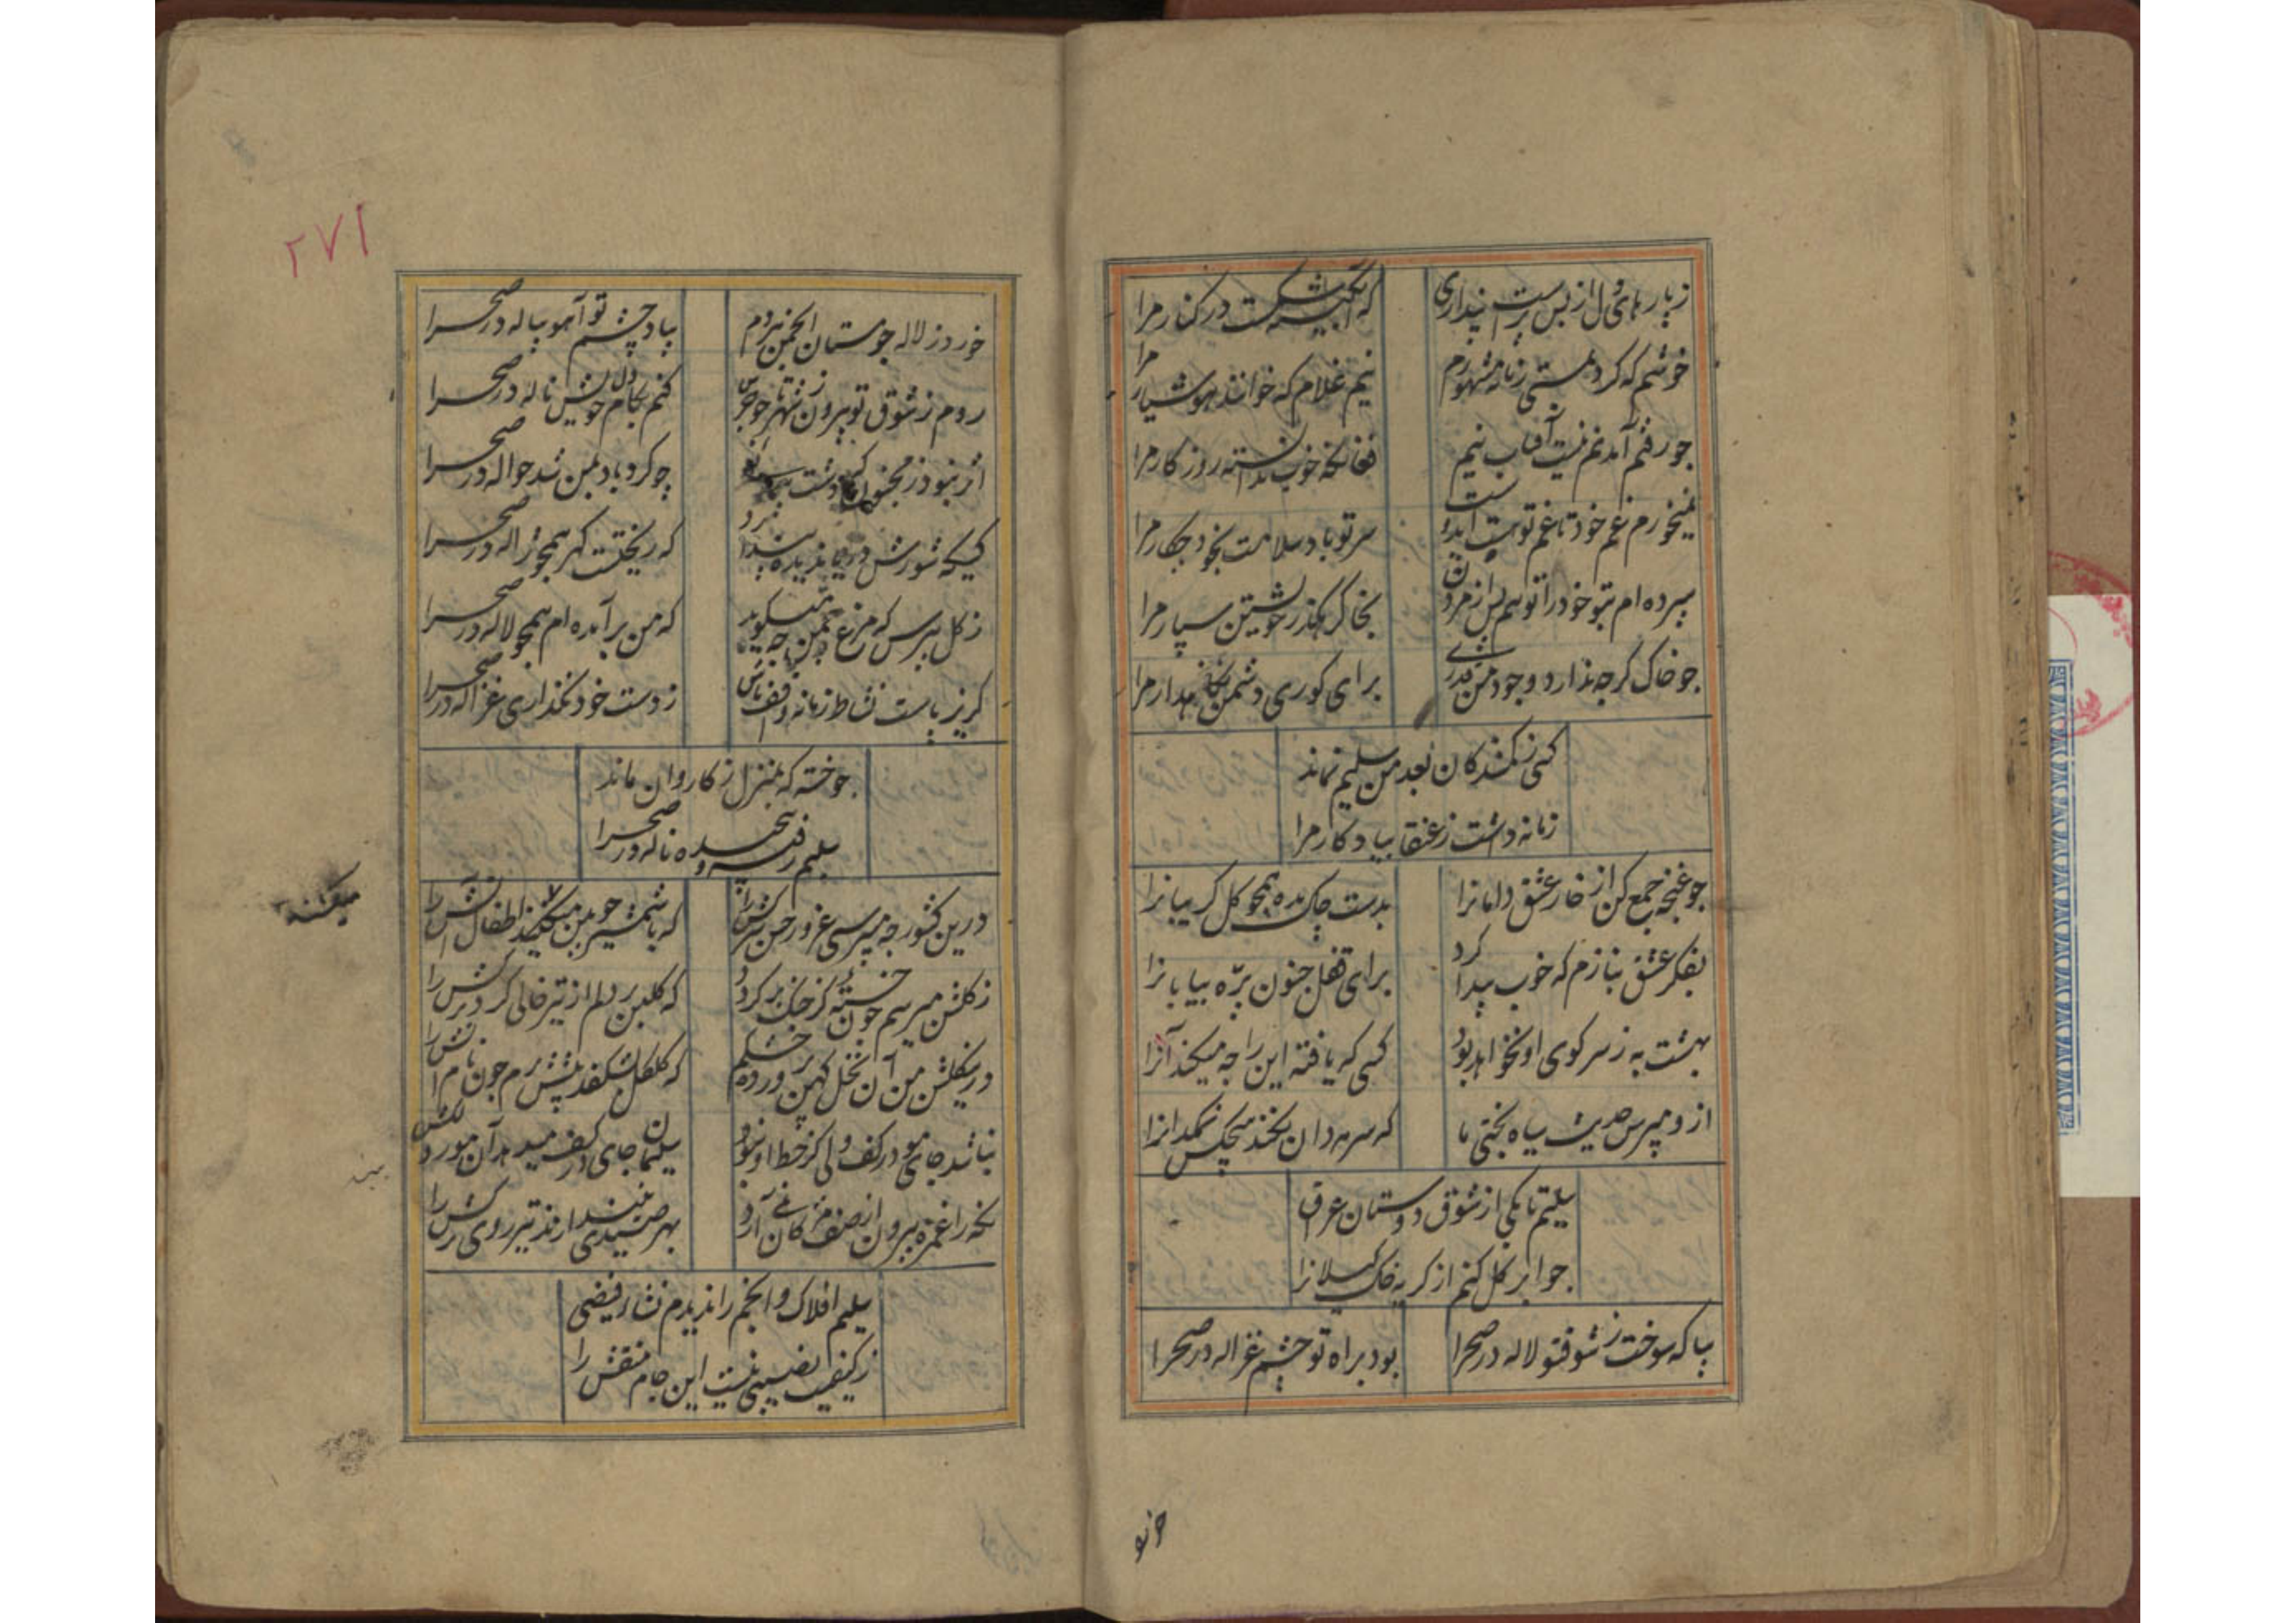 ز پارهای دل از بس پرست پنداری
که آبگینه شکست در کنار مرا
خوشم که کرد مستی زمانه مشهورم
نیم غلام که خوانند هوشیار مرا
چو رفتم آمدنم نیست آفتاب نیم
فغانکه خوب ندانسته روزکار مرا
نمیخورم غم خود تا غم تو
سر تو باد سلامت بخود چکار مرا
سپرده ام بتو خود را تو هم پس از مردن
بخاک رهکذر خویشتن سپار مرا
جو خاک کرچه ندارد وجود من قدری
برای کوری دشمن نکاه دار مرا
کسی ز کمشدکان بعد من سلیم نماند
زمانه داشت ز عنقا بیادکار مرا
جو غنچه جمع کن از خار عشق دامانرا
بدست چاک مده همجو کل کریبانرا
بفکر عشق بنازم که خوب پیدا کرد
برای قفل جنون پره بیابانرا
بهشت به ز سر کوی او نخواهد بود
کسی که یافته این را جه میکند آنرا
ازو مپرس حدیث سیاه بختی ما
که سرمه دان نکند هیچکس نمکدانرا
سلیم تا بکی از شوق دوستان عراق
جو ابر کل کنم از کریه خاک کیلانرا
بیا که سوخت ز شوقتو لاله در صحرا
بود براه تو چشم غزاله در صحرا
خورد
۲۷۱
خورد ز لاله جو مستان انجمن هر دم
بیاد چشم تو آهو پیاله در صحرا
روم ز شوق تو بیرون ز شهر تا جو جرس
کنم بکام دل خویش ناله در صحرا
اثر نبود ز مجنون دشت
چو کردباد بمن شد حواله در صحرا
کسیکه شورش دریا ندیده پندارد
که ریختست کهر همجو ژاله در صحرا
ز کل مپرس که مرغ چمن چه میکوید
که من برآمده ام همجو لاله در صحرا
کریزپاست نشاط زمانه واقف باش
ز دست خود نکذاری غزاله در صحرا
جو خسته که بمنزل ز کاروان ماند
سلیم رفته و ناله در صحرا
درین کشور جه میپرسی غرور حسن سرکش را
که با شمشیر چوبین میکشند اطفال آتش را
میکشند
ز کلشن میرسم چون خسته کز جنک برکردد
که کلبن بر دلم از تیر خالی کرد ترکش را
درین کلشن من آن نخل کهن ورده خشکم
که کلکل بشکفد پیشش برم چون نام آتش را
نباشد جای مو در کف ولی کز خط او نبود
سلیمان جای در کف میدهد آن مور دلکش را
نکه را غمزه بیرون از صف مژکان نمی آرد
بهر صیدی نیندازند تیر روی ترکش را
سلیم افلاک و انجم را ندیدم نشاء فیضی
ز کیفیت نصیبی نیست این جام منقش را